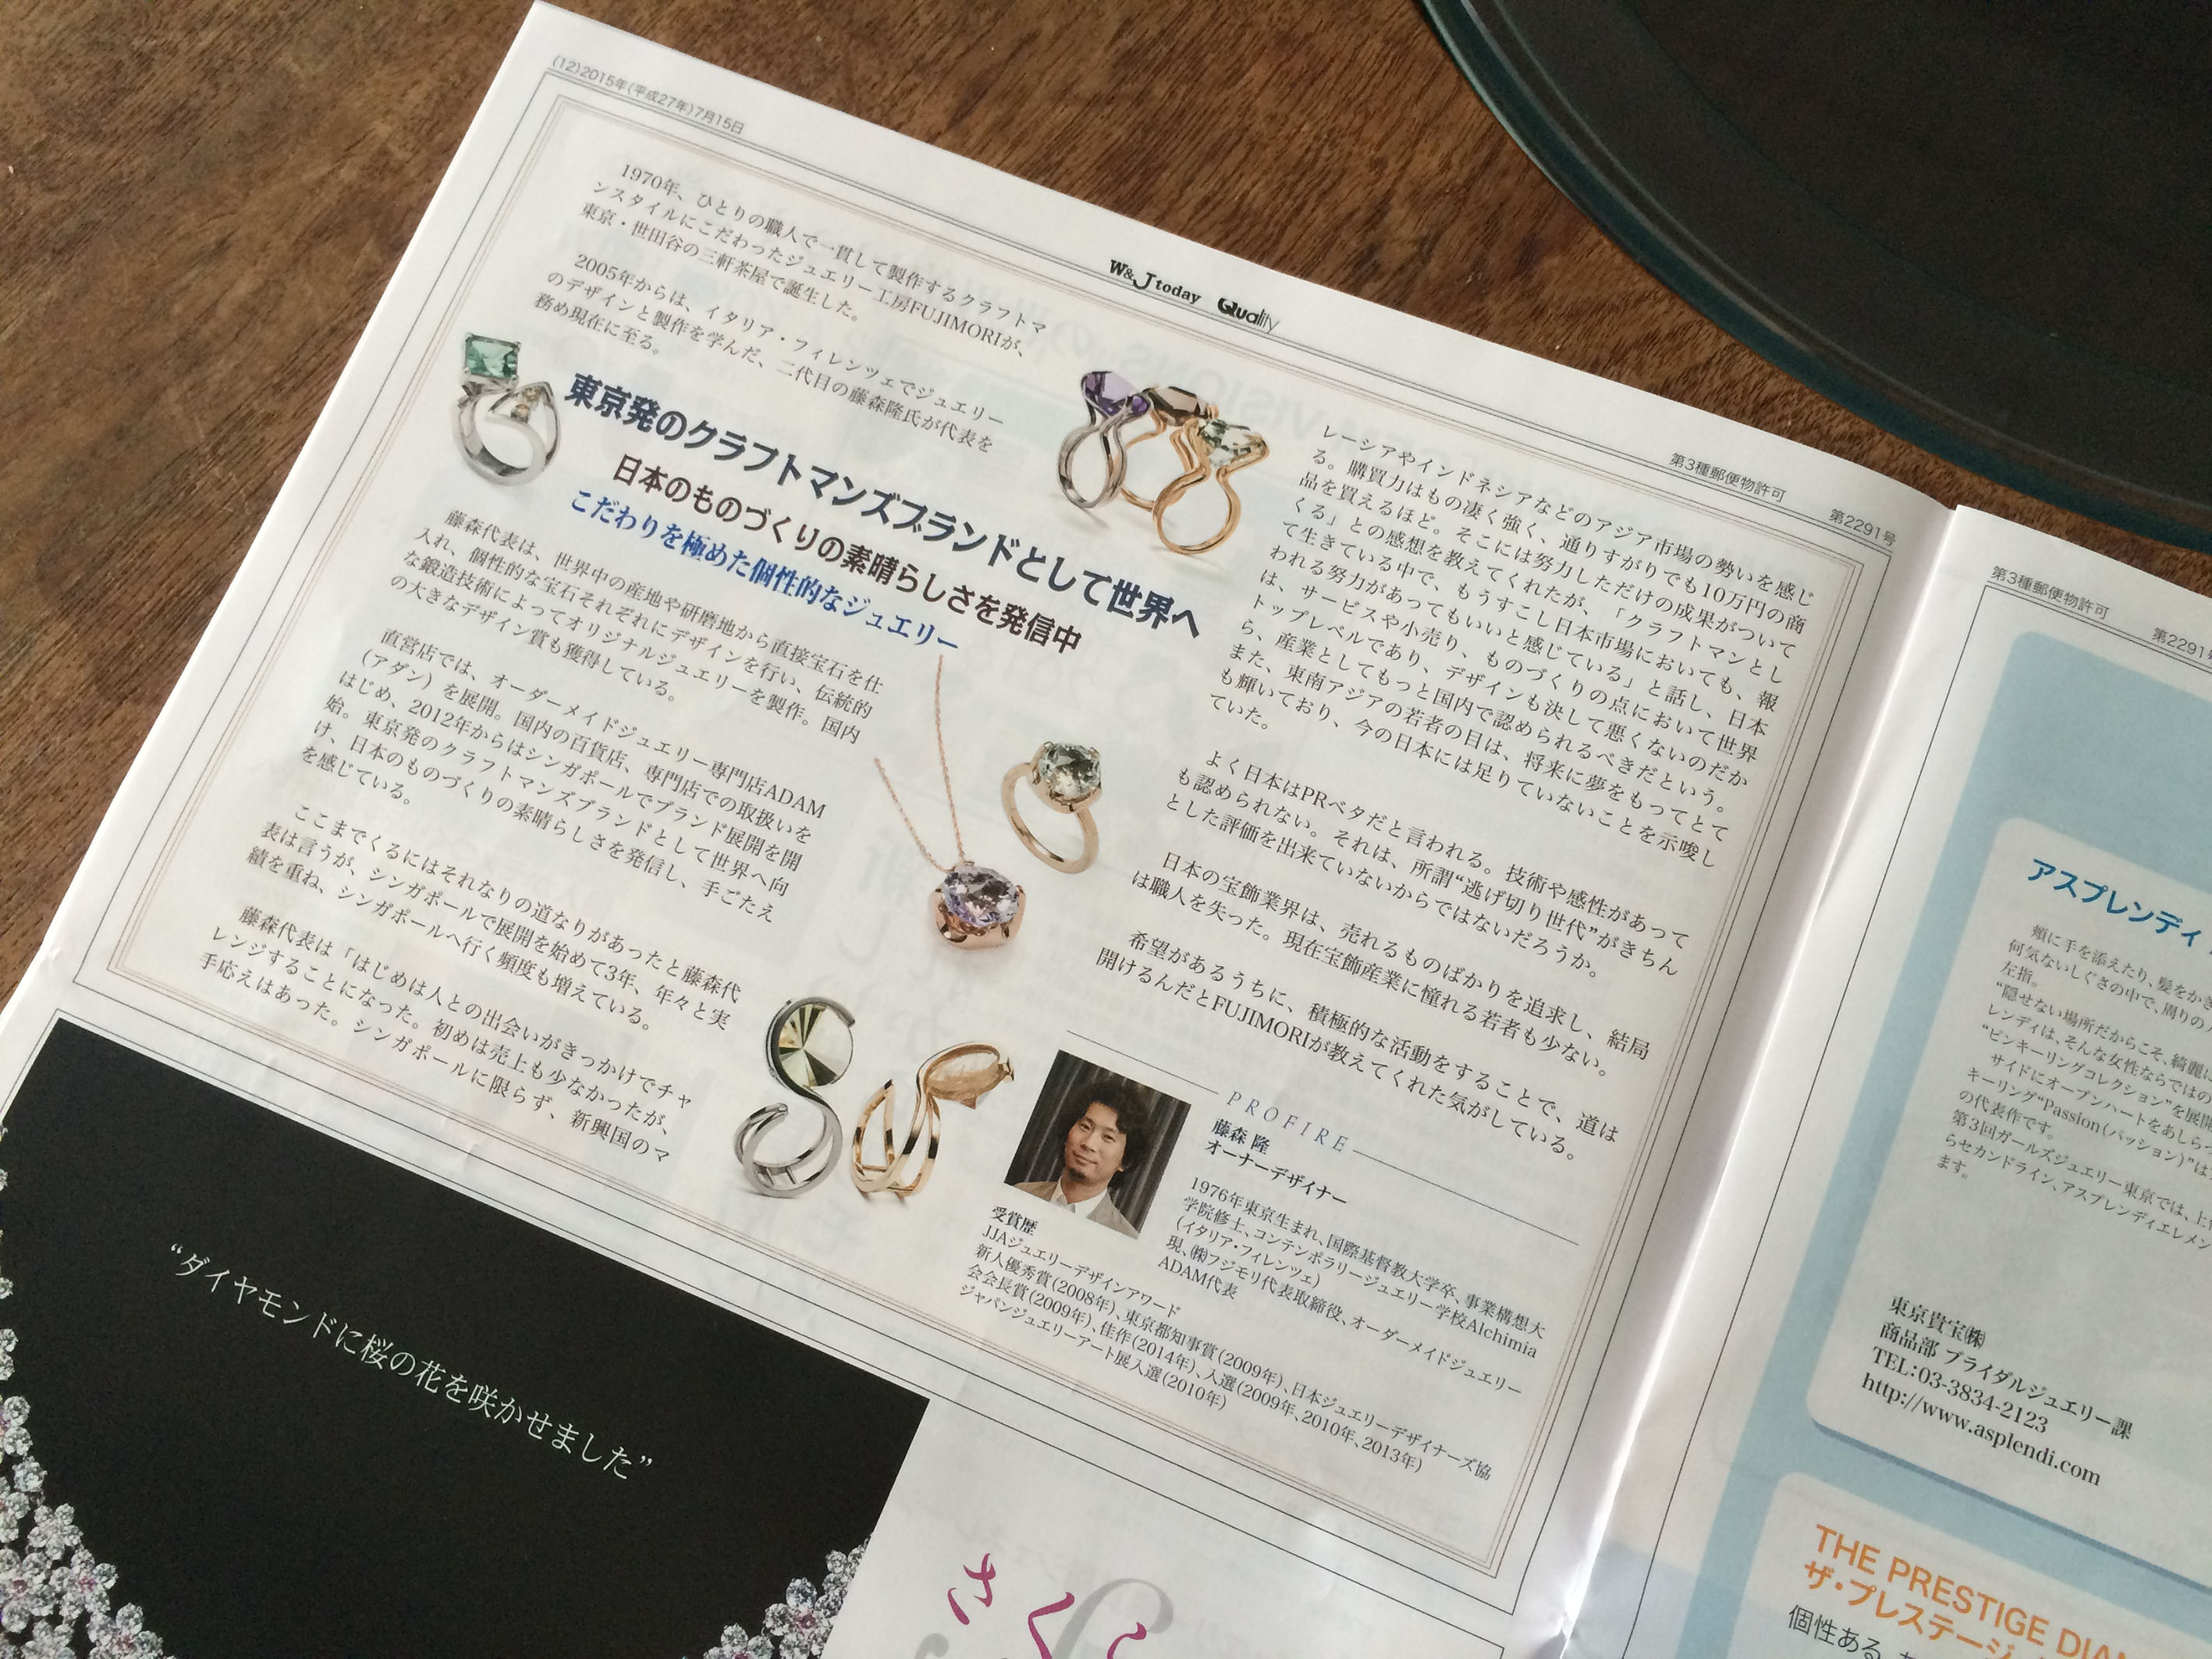 (12)2015年(平成27年)7月15日
W&J today Quality
第3種郵便物許可
第2291号
1970年、ひとりの職人で一貫して製作するクラフトマ
ンスタイルにこだわったジュエリー工房FUJIMORIが、
東京・世田谷の三軒茶屋で誕生した。
2005年からは、イタリア・フィレンツェでジュエリー
のデザインと製作を学んだ、二代目の藤森隆氏が代表を
務め現在に至る。
東京発のクラフトマンズブランドとして世界へ
日本のものづくりの素晴らしさを発信中
こだわりを極めた個性的なジュエリー
藤森代表は、世界中の産地や研磨地から直接宝石を仕
入れ、個性的な宝石それぞれにデザインを行い、伝統的
な鍛造技術によってオリジナルジュエリーを製作。国内
の大きなデザイン賞も獲得している。
直営店では、オーダーメイドジュエリー専門店ADAM
(アダン)を展開。国内の百貨店、専門店での取扱いを
はじめ、2012年からはシンガポールでブランド展開を開
始。東京発のクラフトマンズブランドとして世界へ向
け、日本のものづくりの素晴らしさを発信し、手ごたえ
を感じている。
ここまでくるにはそれなりの道なりがあったと藤森代
表は言うが、シンガポールで展開を始めて3年、年々と実
績を重ね、シンガポールへ行く頻度も増えている。
藤森代表は「はじめは人との出会いがきっかけでチャ
レンジすることになった。初めは売上も少なかったが、
手応えはあった。シンガポールに限らず、新興国のマ
レーシアやインドネシアなどのアジア市場の勢いを感じ
る。購買力はもの凄く強く、通りすがりでも10万円の商
品を買えるほど。そこには努力しただけの成果がついて
くる」との感想を教えてくれたが、「クラフトマンとし
て生きている中で、もうすこし日本市場においても、報
われる努力があってもいいと感じている」と話し、日本
は、サービスや小売り、ものづくりの点において世界
トップレベルであり、デザインも決して悪くないのだか
ら、産業としてもっと国内で認められるべきだという。
また、東南アジアの若者の目は、将来に夢をもってとて
も輝いており、今の日本には足りていないことを示唆し
ていた。
よく日本はPRベタだと言われる。技術や感性があって
も認められない。それは、所謂“逃げ切り世代”がきちん
とした評価を出来ていないからではないだろうか。
日本の宝飾業界は、売れるものばかりを追求し、結局
は職人を失った。現在宝飾産業に憧れる若者も少ない。
希望があるうちに、積極的な活動をすることで、道は
開けるんだとFUJIMORIが教えてくれた気がしている。
PROFIRE
藤森 隆
オーナーデザイナー
1976年東京生まれ、国際基督教大学卒、事業構想大
学院修士、コンテンポラリージュエリー学校Alchimia
(イタリア・フィレンツェ)
現、㈱フジモリ代表取締役、オーダーメイドジュエリー
ADAM代表
受賞歴
JJAジュエリーデザインアワード
新人優秀賞(2008年)、東京都知事賞(2009年)、日本ジュエリーデザイナーズ協
会会長賞(2009年)、佳作(2014年)、入選(2009年、2010年、2013年)
ジャパンジュエリーアート展入選(2010年)
“ダイヤモンドに桜の花を咲かせました”
さくら
第3種郵便物許可
第2291号
アスプレンディ
頬に手を添えたり、髪をかき
何気ないしぐさの中で、周りの
左指。
“隠せない場所だからこそ、綺麗に
レンディは、そんな女性ならではの
“ピンキーリングコレクション”を展開
サイドにオープンハートをあしらっ
キーリング“Passion(パッション)”は
の代表作です。
第3回ガールズジュエリー東京では、上
らセカンドライン、アスプレンディエレメン
ます。
東京貴宝㈱
商品部 ブライダルジュエリー課
TEL:03-3834-2123
http://www.asplendi.com
THE PRESTIGE DIAM
ザ・プレステージ
個性ある